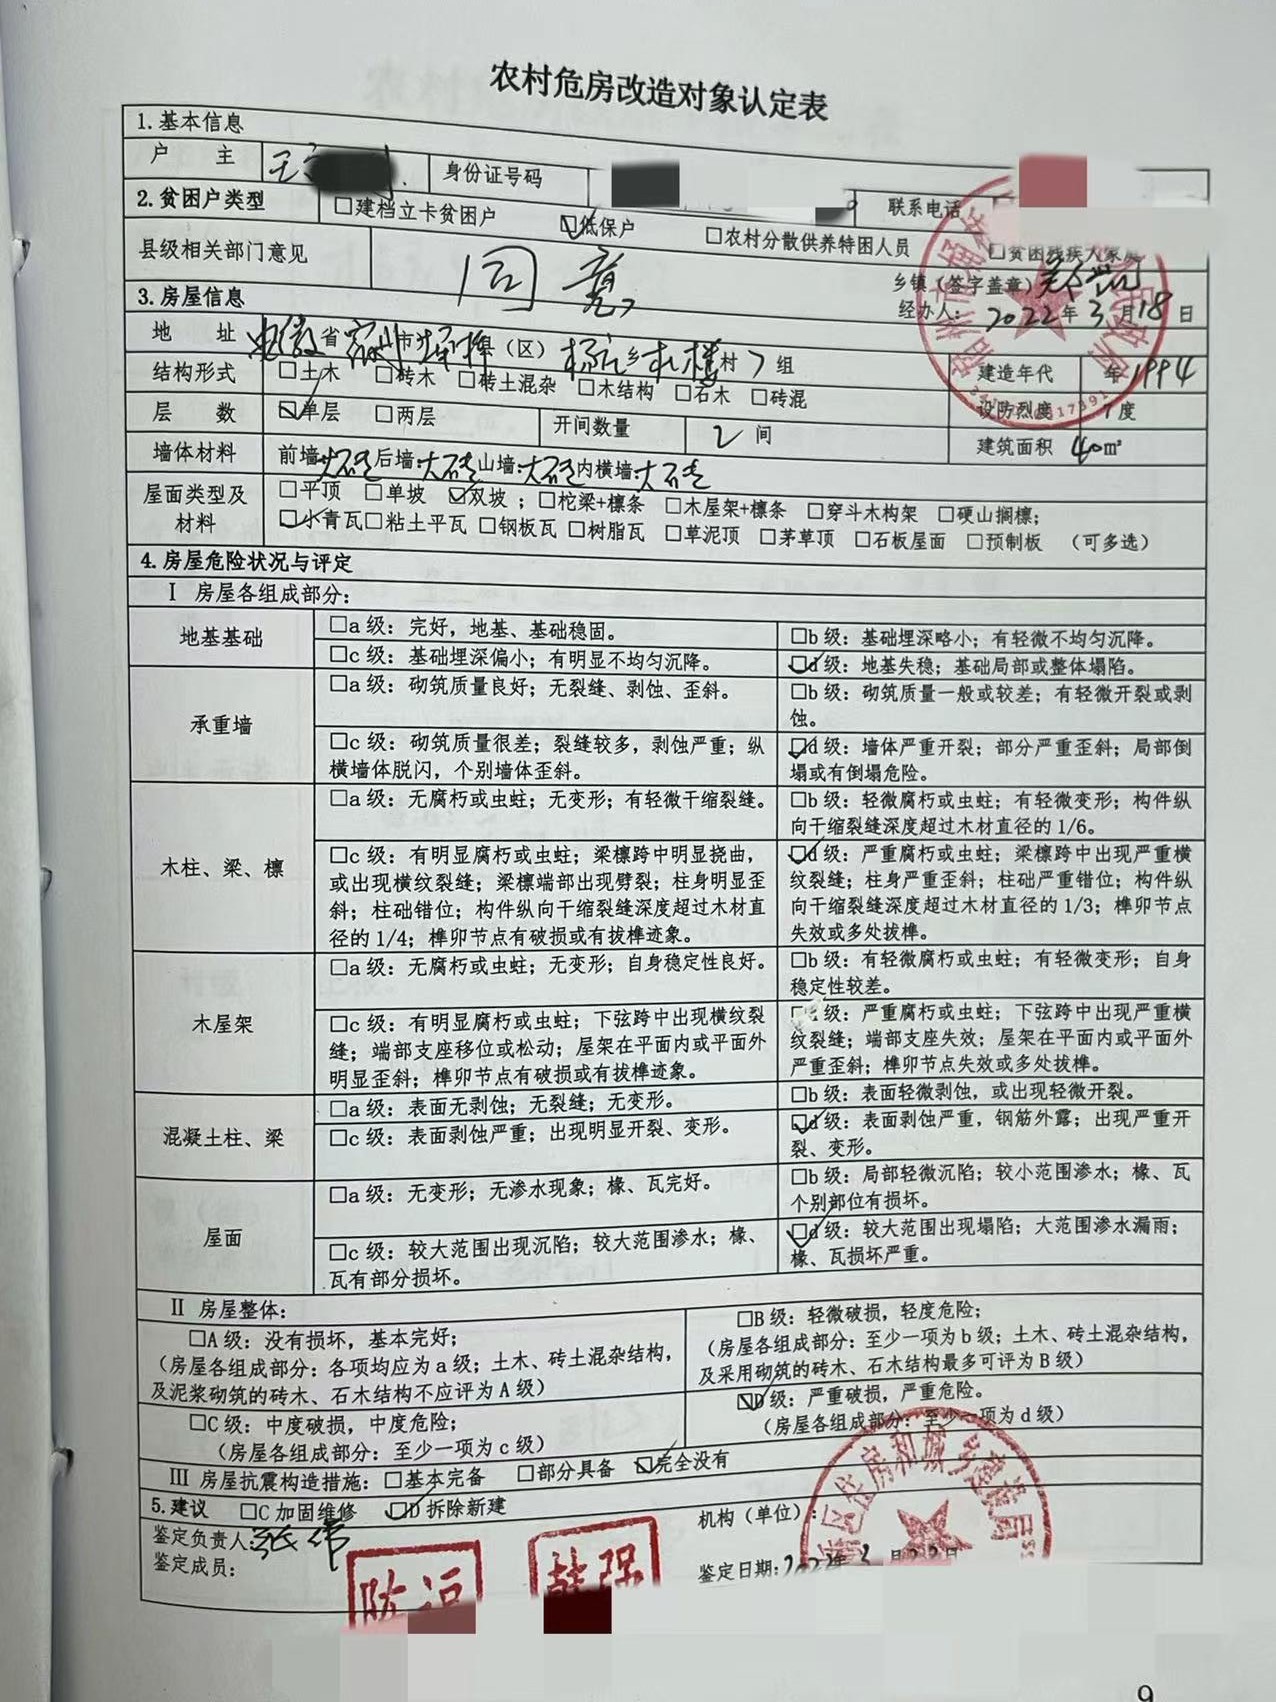 农村危房改造对象认定表
1.基本信息
户 主 王 身份证号码 联系电话
2.贫困户类型 □建档立卡贫困户 ☑低保户 □农村分散供养特困人员 □贫困残疾人家庭
县级相关部门意见 同意 乡镇(签字盖章)
经办人: 2022年3月18日
3.房屋信息
地 址 安徽省宿州市埇桥县(区) 杨庄乡 楼村7组
结构形式 □土木 □砖木 □砖土混杂 □木结构 □石木 □砖混 建造年代 年1994
层 数 ☑单层 □两层 开间数量 2间 设防烈度 7度
墙体材料 前墙: 后墙: 山墙: 内横墙: 建筑面积 40㎡
屋面类型及材料 □平顶 □单坡 ☑双坡 ;□柁梁+檩条 □木屋架+檩条 □穿斗木构架 □硬山搁檩;
☑小青瓦□粘土平瓦 □钢板瓦 □树脂瓦 □草泥顶 □茅草顶 □石板屋面 □预制板 (可多选)
4.房屋危险状况与评定
Ⅰ 房屋各组成部分:
地基基础
□a级: 完好,地基、基础稳固。
□b级: 基础埋深略小;有轻微不均匀沉降。
□c级: 基础埋深偏小;有明显不均匀沉降。
☑d级: 地基失稳;基础局部或整体塌陷。
承重墙
□a级: 砌筑质量良好;无裂缝、剥蚀、歪斜。
□b级: 砌筑质量一般或较差;有轻微开裂或剥
蚀。
□c级: 砌筑质量很差;裂缝较多,剥蚀严重;纵
横墙体脱闪,个别墙体歪斜。
☑d级: 墙体严重开裂;部分严重歪斜;局部倒
塌或有倒塌危险。
木柱、梁、檩
□a级: 无腐朽或虫蛀;无变形;有轻微干缩裂缝。
□b级: 轻微腐朽或虫蛀;有轻微变形;构件纵
向干缩裂缝深度超过木材直径的1/6。
□c级: 有明显腐朽或虫蛀;梁檩跨中明显挠曲,
或出现横纹裂缝;梁檩端部出现劈裂;柱身明显歪
斜;柱础错位;构件纵向干缩裂缝深度超过木材直
径的1/4;榫卯节点有破损或有拔榫迹象。
☑d级: 严重腐朽或虫蛀;梁檩跨中出现严重横
纹裂缝;柱身严重歪斜;柱础严重错位;构件纵
向干缩裂缝深度超过木材直径的1/3;榫卯节点
失效或多处拔榫。
木屋架
□a级: 无腐朽或虫蛀;无变形;自身稳定性良好。
□b级: 有轻微腐朽或虫蛀;有轻微变形;自身
稳定性较差。
□c级: 有明显腐朽或虫蛀;下弦跨中出现横纹裂
缝;端部支座移位或松动;屋架在平面内或平面外
明显歪斜;榫卯节点有破损或有拔榫迹象。
级: 严重腐朽或虫蛀;下弦跨中出现严重横
纹裂缝;端部支座失效;屋架在平面内或平面外
严重歪斜;榫卯节点失效或多处拔榫。
混凝土柱、梁
□a级: 表面无剥蚀;无裂缝;无变形。
□b级: 表面轻微剥蚀,或出现轻微开裂。
□c级: 表面剥蚀严重;出现明显开裂、变形。
☑d级: 表面剥蚀严重,钢筋外露;出现严重开
裂、变形。
屋面
□a级: 无变形;无渗水现象;椽、瓦完好。
□b级: 局部轻微沉陷;较小范围渗水;椽、瓦
个别部位有损坏。
□c级: 较大范围出现沉陷;较大范围渗水;椽、
瓦有部分损坏。
☑d级: 较大范围出现塌陷;大范围渗水漏雨;
椽、瓦损坏严重。
Ⅱ 房屋整体:
□A级: 没有损坏,基本完好;
(房屋各组成部分: 各项均应为a级;土木、砖土混杂结构,
及泥浆砌筑的砖木、石木结构不应评为A级)
□B级: 轻微破损,轻度危险;
(房屋各组成部分: 至少一项为b级;土木、砖土混杂结构,
及采用砌筑的砖木、石木结构最多可评为B级)
□C级: 中度破损,中度危险;
(房屋各组成部分: 至少一项为c级)
☑D级: 严重破损,严重危险。
(房屋各组成部分: 至少一项为d级)
Ⅲ 房屋抗震构造措施: □基本完备 □部分具备 ☑完全没有
5.建议 □C加固维修 ☑D拆除新建
鉴定负责人: 张伟
鉴定成员:
机构(单位):
区住房和城乡建设局
鉴定日期: 2022年3月
9